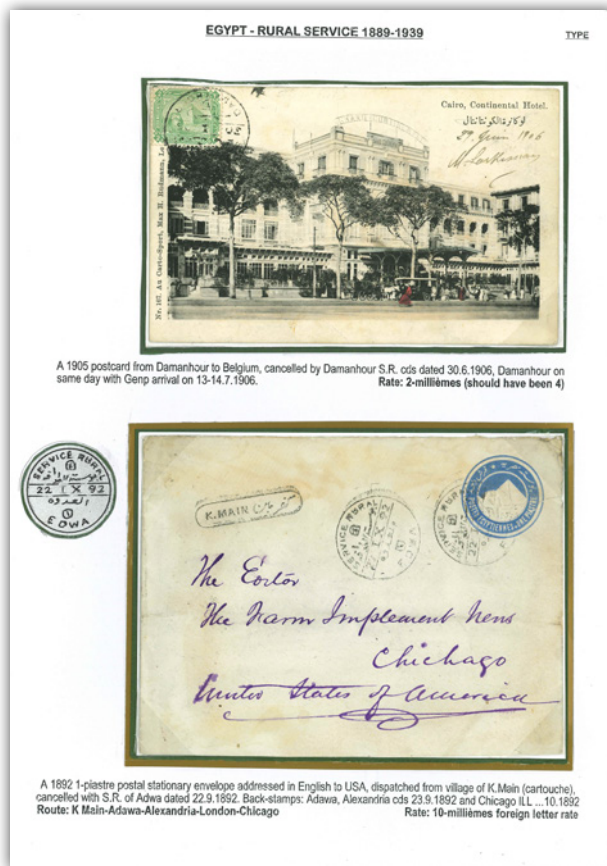 EGYPT - RURAL SERVICE 1889-1939
TYPE
Cairo, Continental Hotel.
لوكاندة الكونتننتال
29 Juin 1906
Nr. 167. Au Carto-Sport, Max H. Rudmann, Le
A 1905 postcard from Damanhour to Belgium, cancelled by Damanhour S.R. cds dated 30.6.1906, Damanhour on
same day with Genp arrival on 13-14.7.1906.
Rate: 2-millièmes (should have been 4)
SERVICE RURAL
22 IX 92
العدوه
EDWA
K.MAIN
SERVICE RURAL
IX 92
SERVICE RURAL
22
The Editor
The Farm Implement News
Chicago
United States of America
A 1892 1-piastre postal stationary envelope addressed in English to USA, dispatched from village of K.Main (cartouche),
cancelled with S.R. of Adwa dated 22.9.1892. Back-stamps: Adawa, Alexandria cds 23.9.1892 and Chicago ILL ...10.1892
Route: K Main-Adawa-Alexandria-London-Chicago
Rate: 10-millièmes foreign letter rate